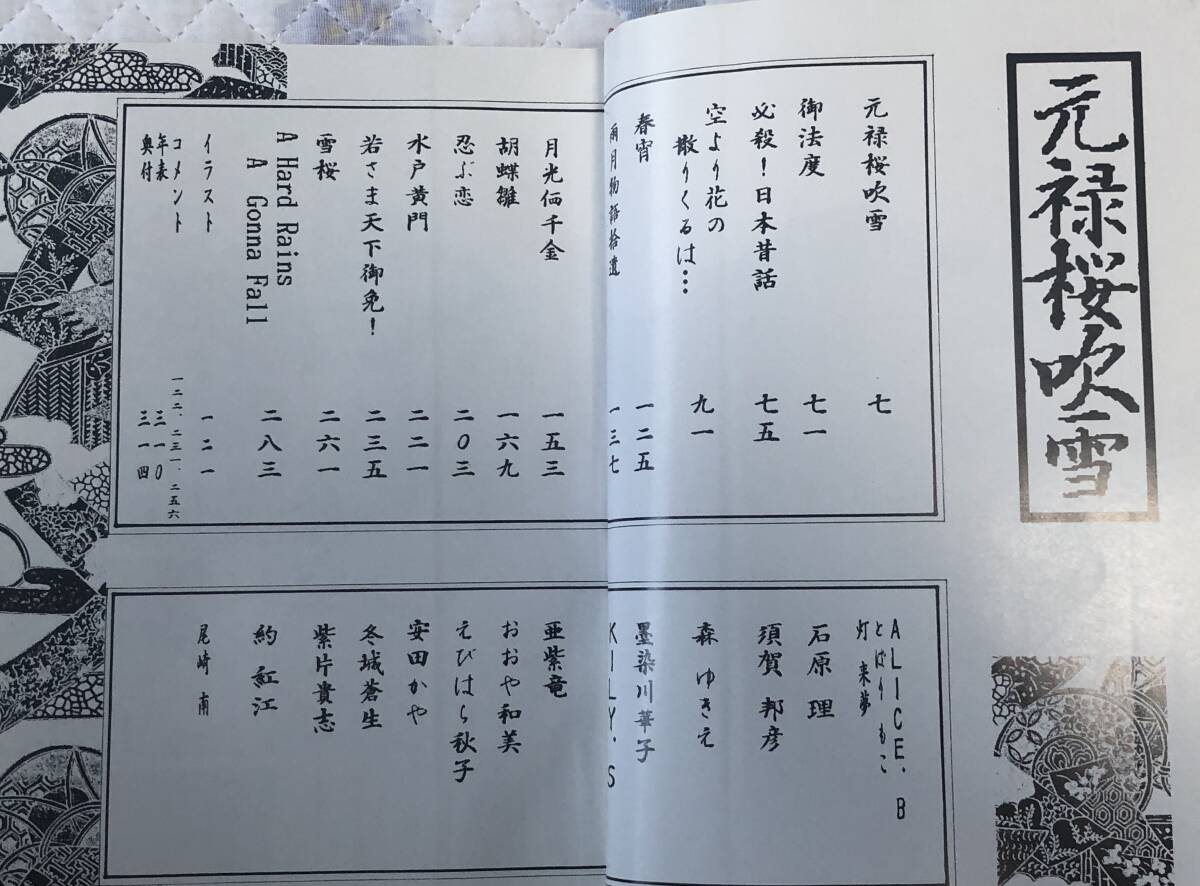 元禄桜吹雪
元禄桜吹雪 七
御法度 七一
必殺！日本昔話 七五
空より花の
散りくるは… 九一
春宵 一二五
雨月物語拾遺 一三七
月光価千金 一五三
胡蝶雛 一六九
忍ぶ恋 二〇三
水戸黄門 二二一
若さま天下御免！ 二三五
雪桜 二六一
A Hard Rains
A Gonna Fall 二八三
イラスト 一二一
コメント 一二二、二三一、二五六
年表 三一〇
奥付 三一四
ALICE.B
とばりもこ
灯 来夢
石原 理
須賀 邦彦
森 ゆきえ
墨染川華子
KILY.S
亜紫竜
おおや和美
えびはら秋子
安田かや
冬城蒼生
紫片貴志
約 紅江
尾崎 南